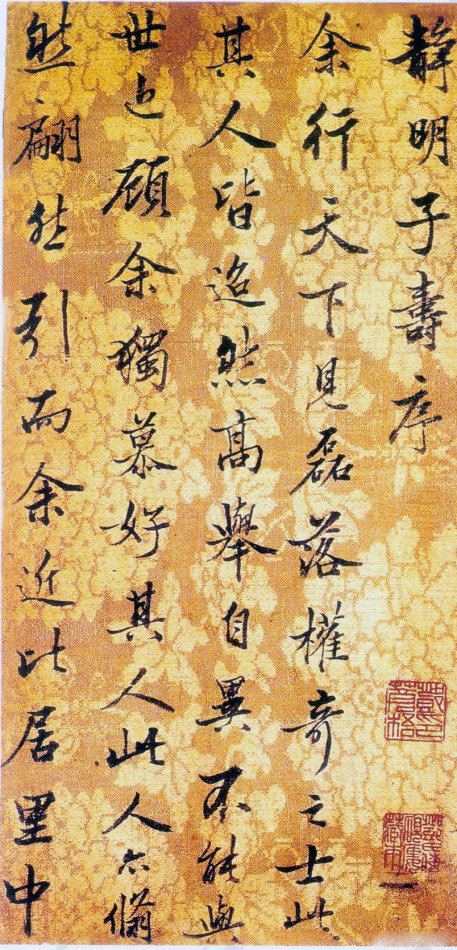 静明子壽序
余行天下見磊落權奇之士此
其人皆迢然高舉自異不能與
世顧余獨慕好其人此人亦翛
然翩然引而余近比居里中